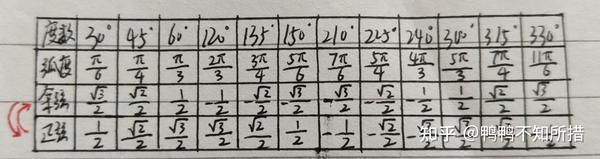 度数 30° 45° 60° 120° 135° 150° 210° 225° 240° 300° 315° 330°
弧度 π/6 π/4 π/3 2π/3 3π/4 5π/6 7π/6 5π/4 4π/3 5π/3 7π/4 11π/6
余弦 √3/2 √2/2 1/2 -1/2 -√2/2 -√3/2 -√3/2 -√2/2 -1/2 1/2 √2/2 √3/2
正弦 1/2 √2/2 √3/2 √3/2 √2/2 1/2 -1/2 -√2/2
知乎 @鸭鸭不知所措